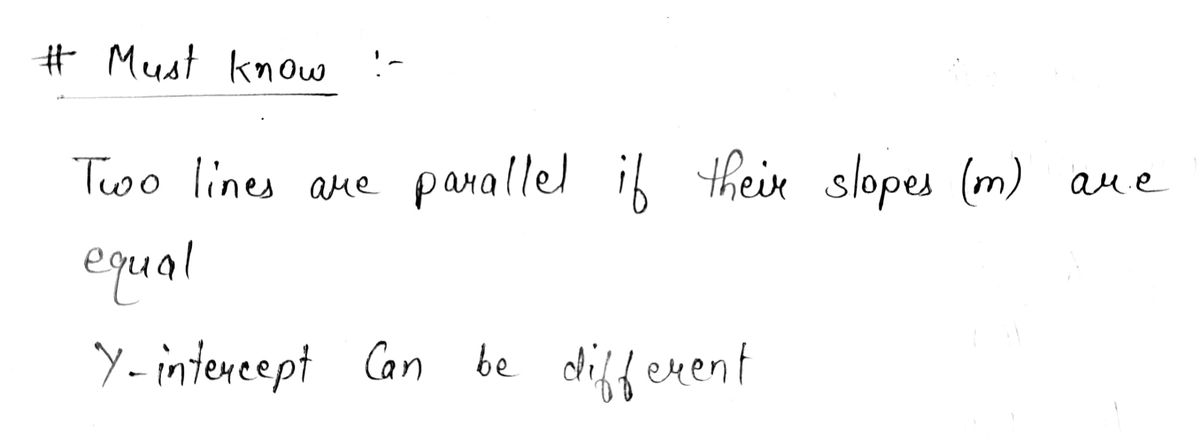 # Must know :-
Two lines are parallel if their slopes (m) are
equal
Y-intercept Can be different